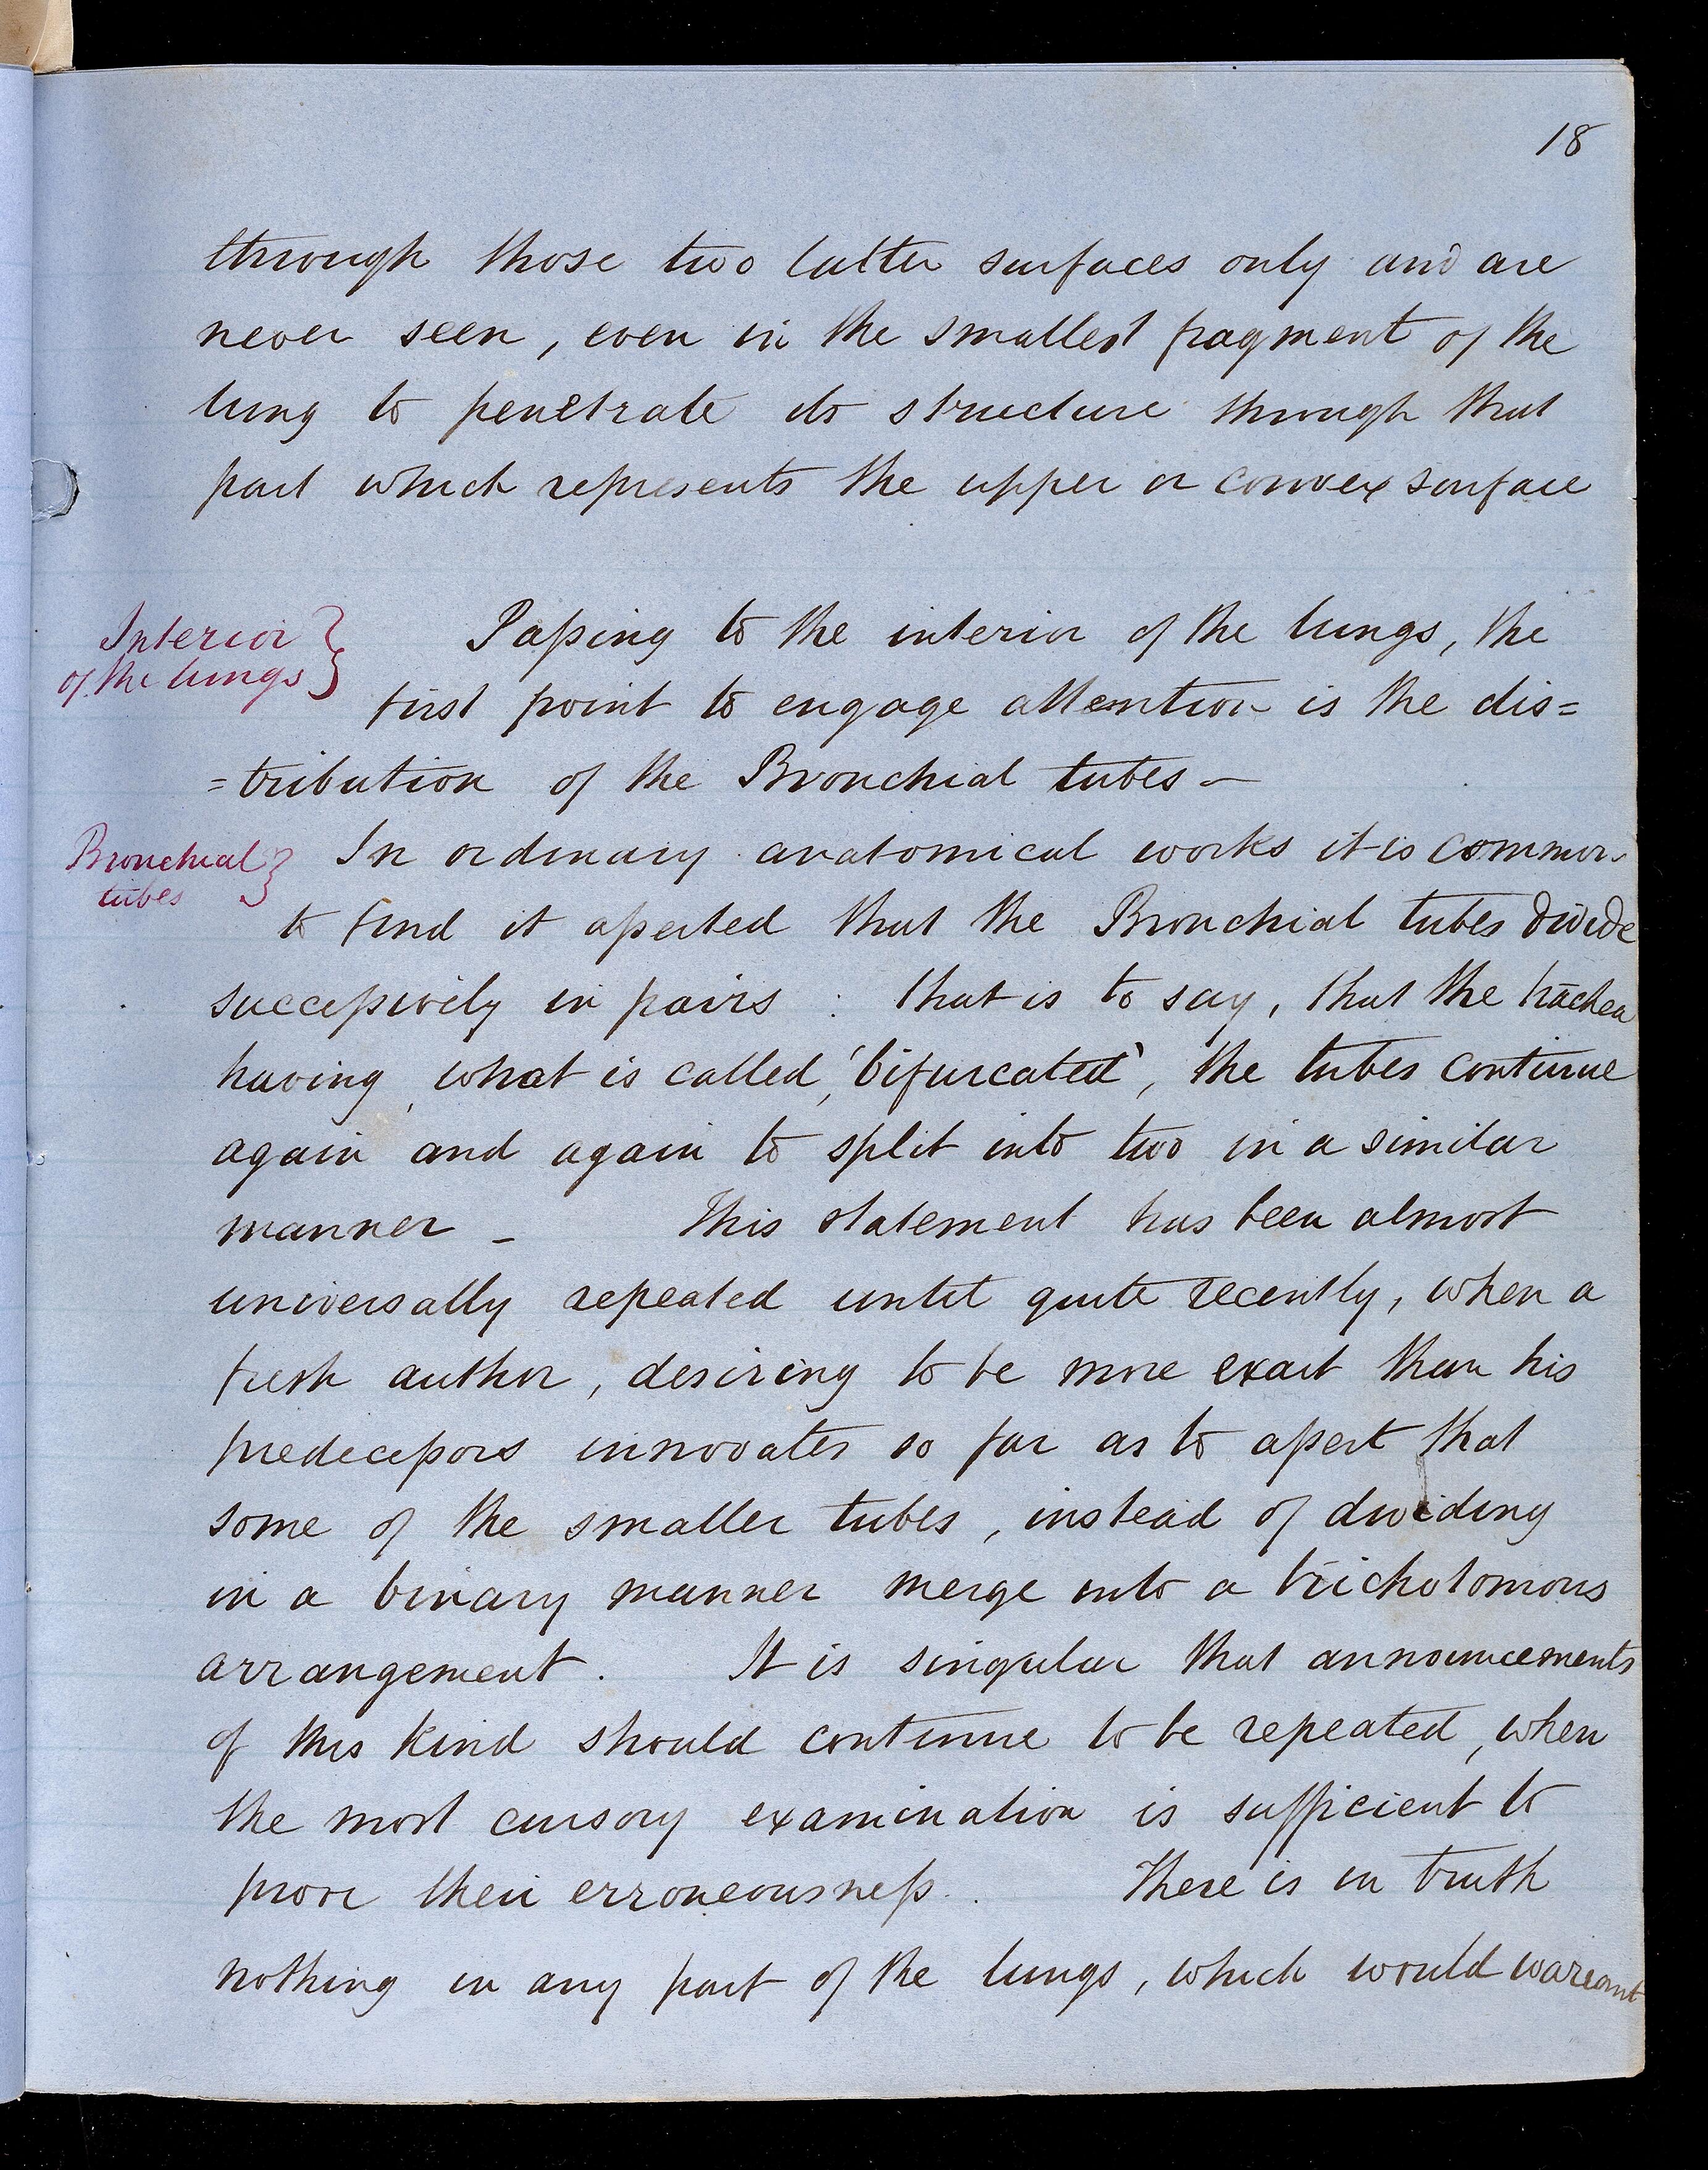 18
through those two latter surfaces only and are
never seen, even in the smallest fragment of the
lung to penetrate its structure through that
part which represents the upper or convex surface
Interior
of the lungs}
Passing to the interior of the lungs, the
first point to engage attention is the dis=
=tribution of the Bronchial tubes –
Bronchial
tubes}
In ordinary anatomical works it is common
to find it asserted that the Bronchial tubes divide
successively in pairs : that is to say, that the trachea
having, what is called, 'bifurcated', the tubes continue
again and again to split into two in a similar
manner – This statement has been almost
universally repeated until quite recently, when a
fresh author, desiring to be more exact than his
predecessors innovates so far as to assert that
some of the smaller tubes, instead of dividing
in a binary manner merge into a trichotomous
arrangement. It is singular that announcements
of this kind should continue to be repeated, when
the most cursory examination is sufficient to
prove their erroneousness. There is in truth
nothing in any part of the lungs, which would warrant